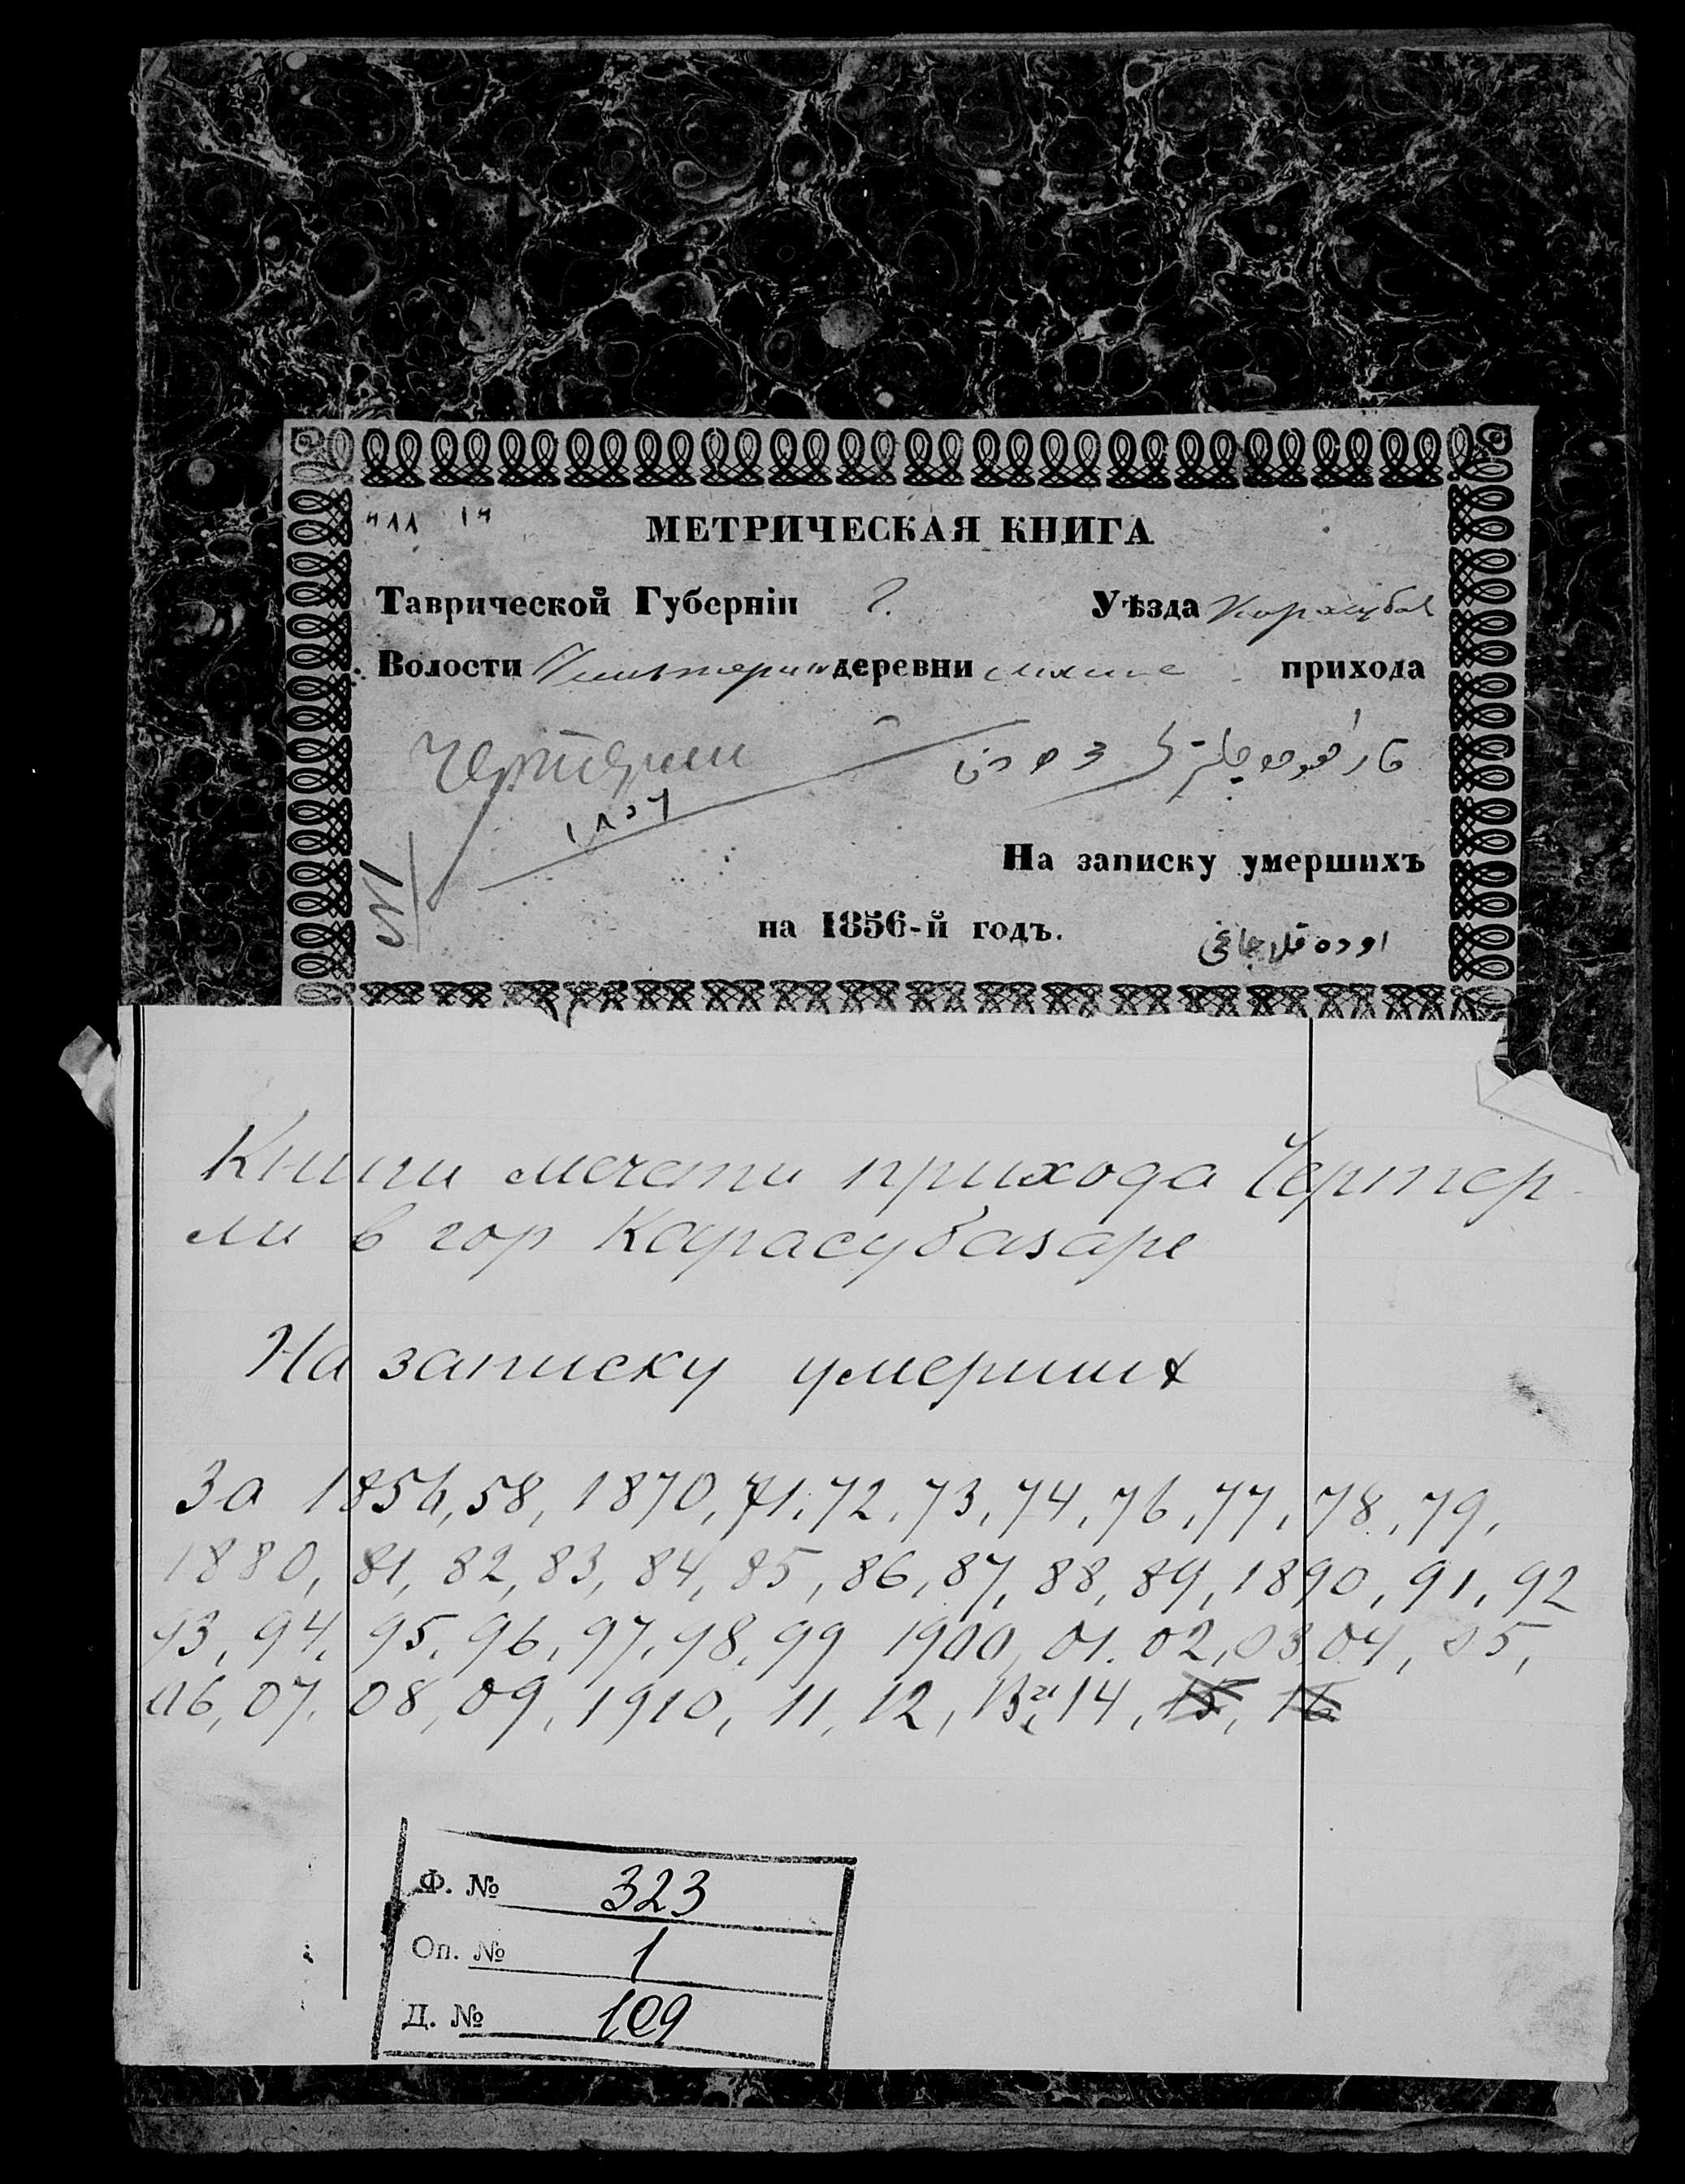 МЕТРИЧЕСКАЯ КНИГА
Таврической Губерніи г. Уѣзда Карасубаз
Волости деревни прихода
١٨٥٦
№1
На записку умершихъ
на 1856-й годъ.
Книги мечети прихода Чертер-
ли в гор Карасубазаре
На записку умерших
За 1856, 58, 1870, 71, 72, 73, 74, 76, 77, 78, 79,
1880, 81, 82, 83, 84, 85, 86, 87, 88, 89, 1890, 91, 92
93, 94, 95, 96, 97, 98, 99 1900, 01. 02, 03, 04, 05,
06, 07, 08, 09, 1910, 11, 12, 13, 14, 15, 16
Ф. № 323
Оп. № 1
Д. № 109